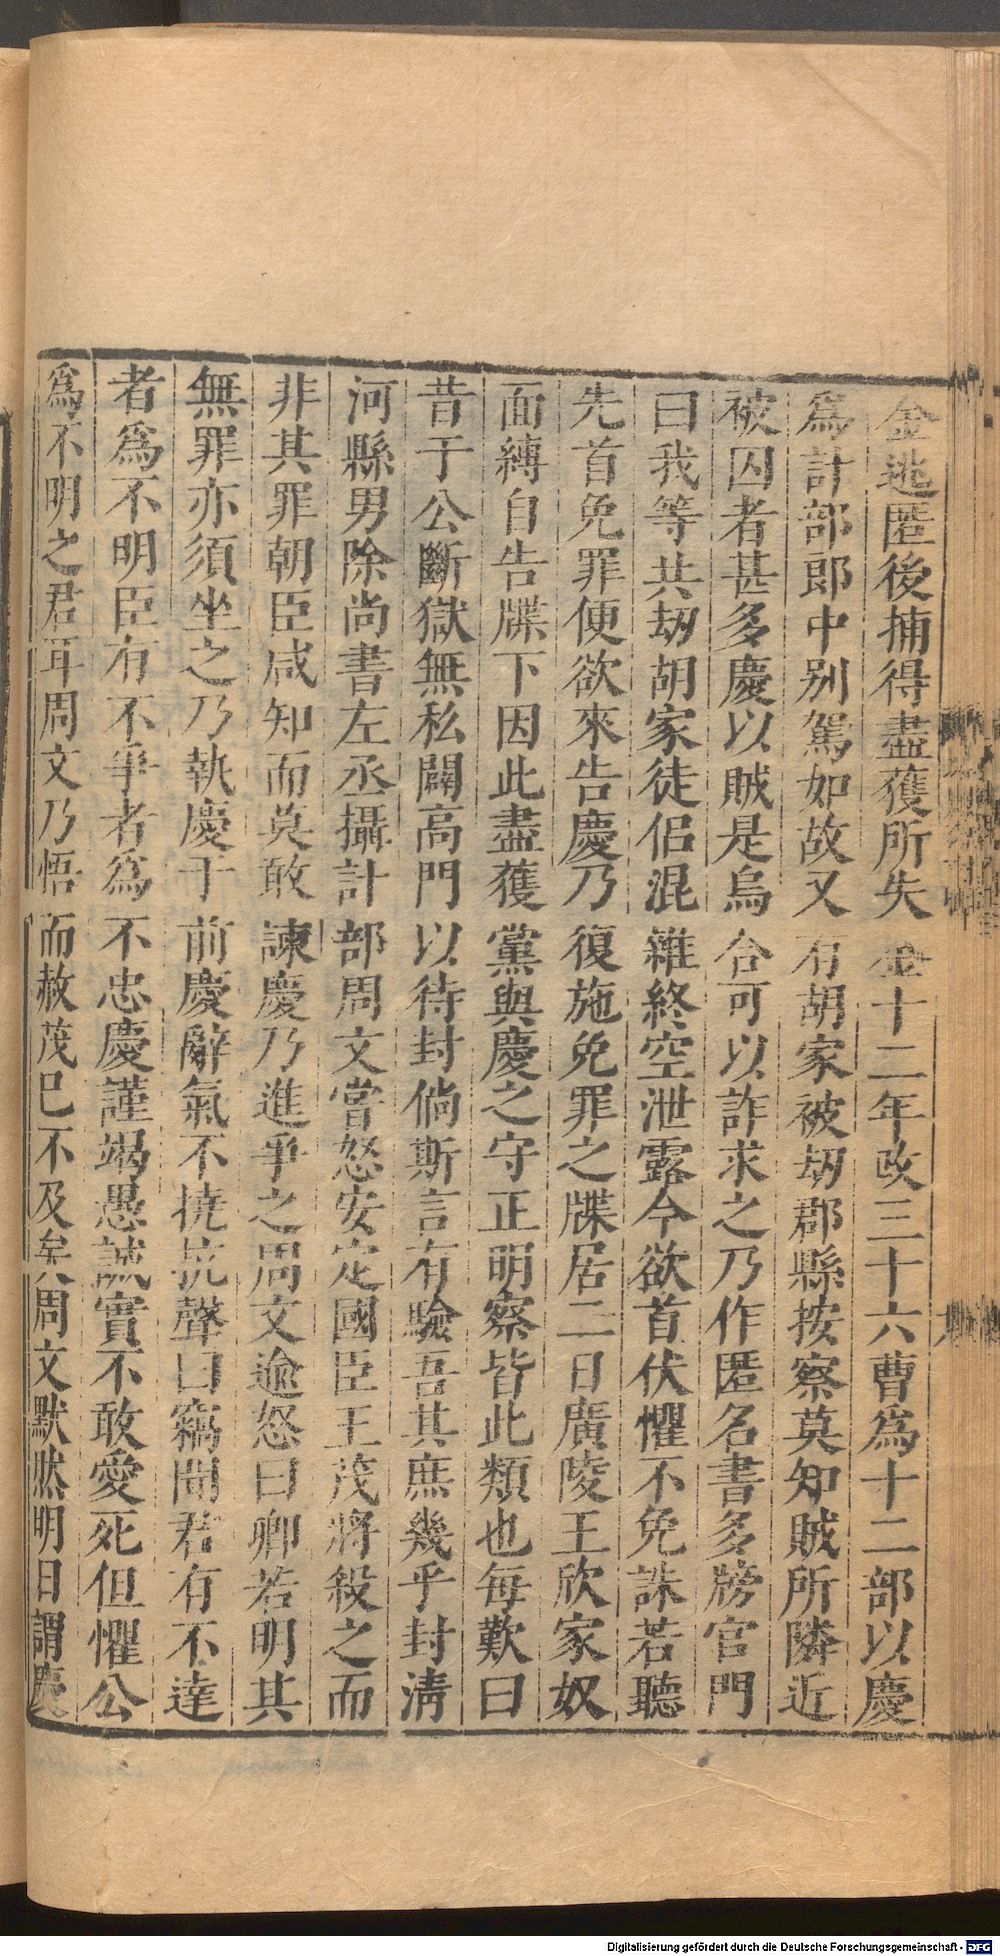 金逃匿後捕得盡獲所失金十二年改三十六曹爲十二部以慶
爲計部郎中别駕如故又有胡家被刼郡縣按察莫知賊所隣近
被囚者甚多慶以賊是烏合可以詐求之乃作匿名書多牓官門
曰我等共刼胡家徒侣混雜終空泄露今欲首伏懼不免誅若聽
先首免罪便欲來告慶乃復施免罪之牒居二日廣陵王欣家奴
面縛自告牒下因此盡獲黨與慶之守正明察皆此類也每歎曰
昔于公斷獄無私闢高門以待封倘斯言有驗吾其庶幾乎封清
河縣男除尚書左丞攝計部周文嘗怒安定國臣王茂將殺之而
非其罪朝臣咸知而莫敢諫慶乃進爭之周文逾怒曰卿若明其
無罪亦須坐之乃執慶于前慶辭氣不撓抗聲曰竊聞君有不達
者爲不明臣有不爭者爲不忠慶謹竭愚誠實不敢愛死但懼公
爲不明之君耳周文乃悟而赦茂已不及矣周文默然明日謂慶
Digitalisierung gefördert durch die Deutsche Forschungsgemeinschaft - DFG